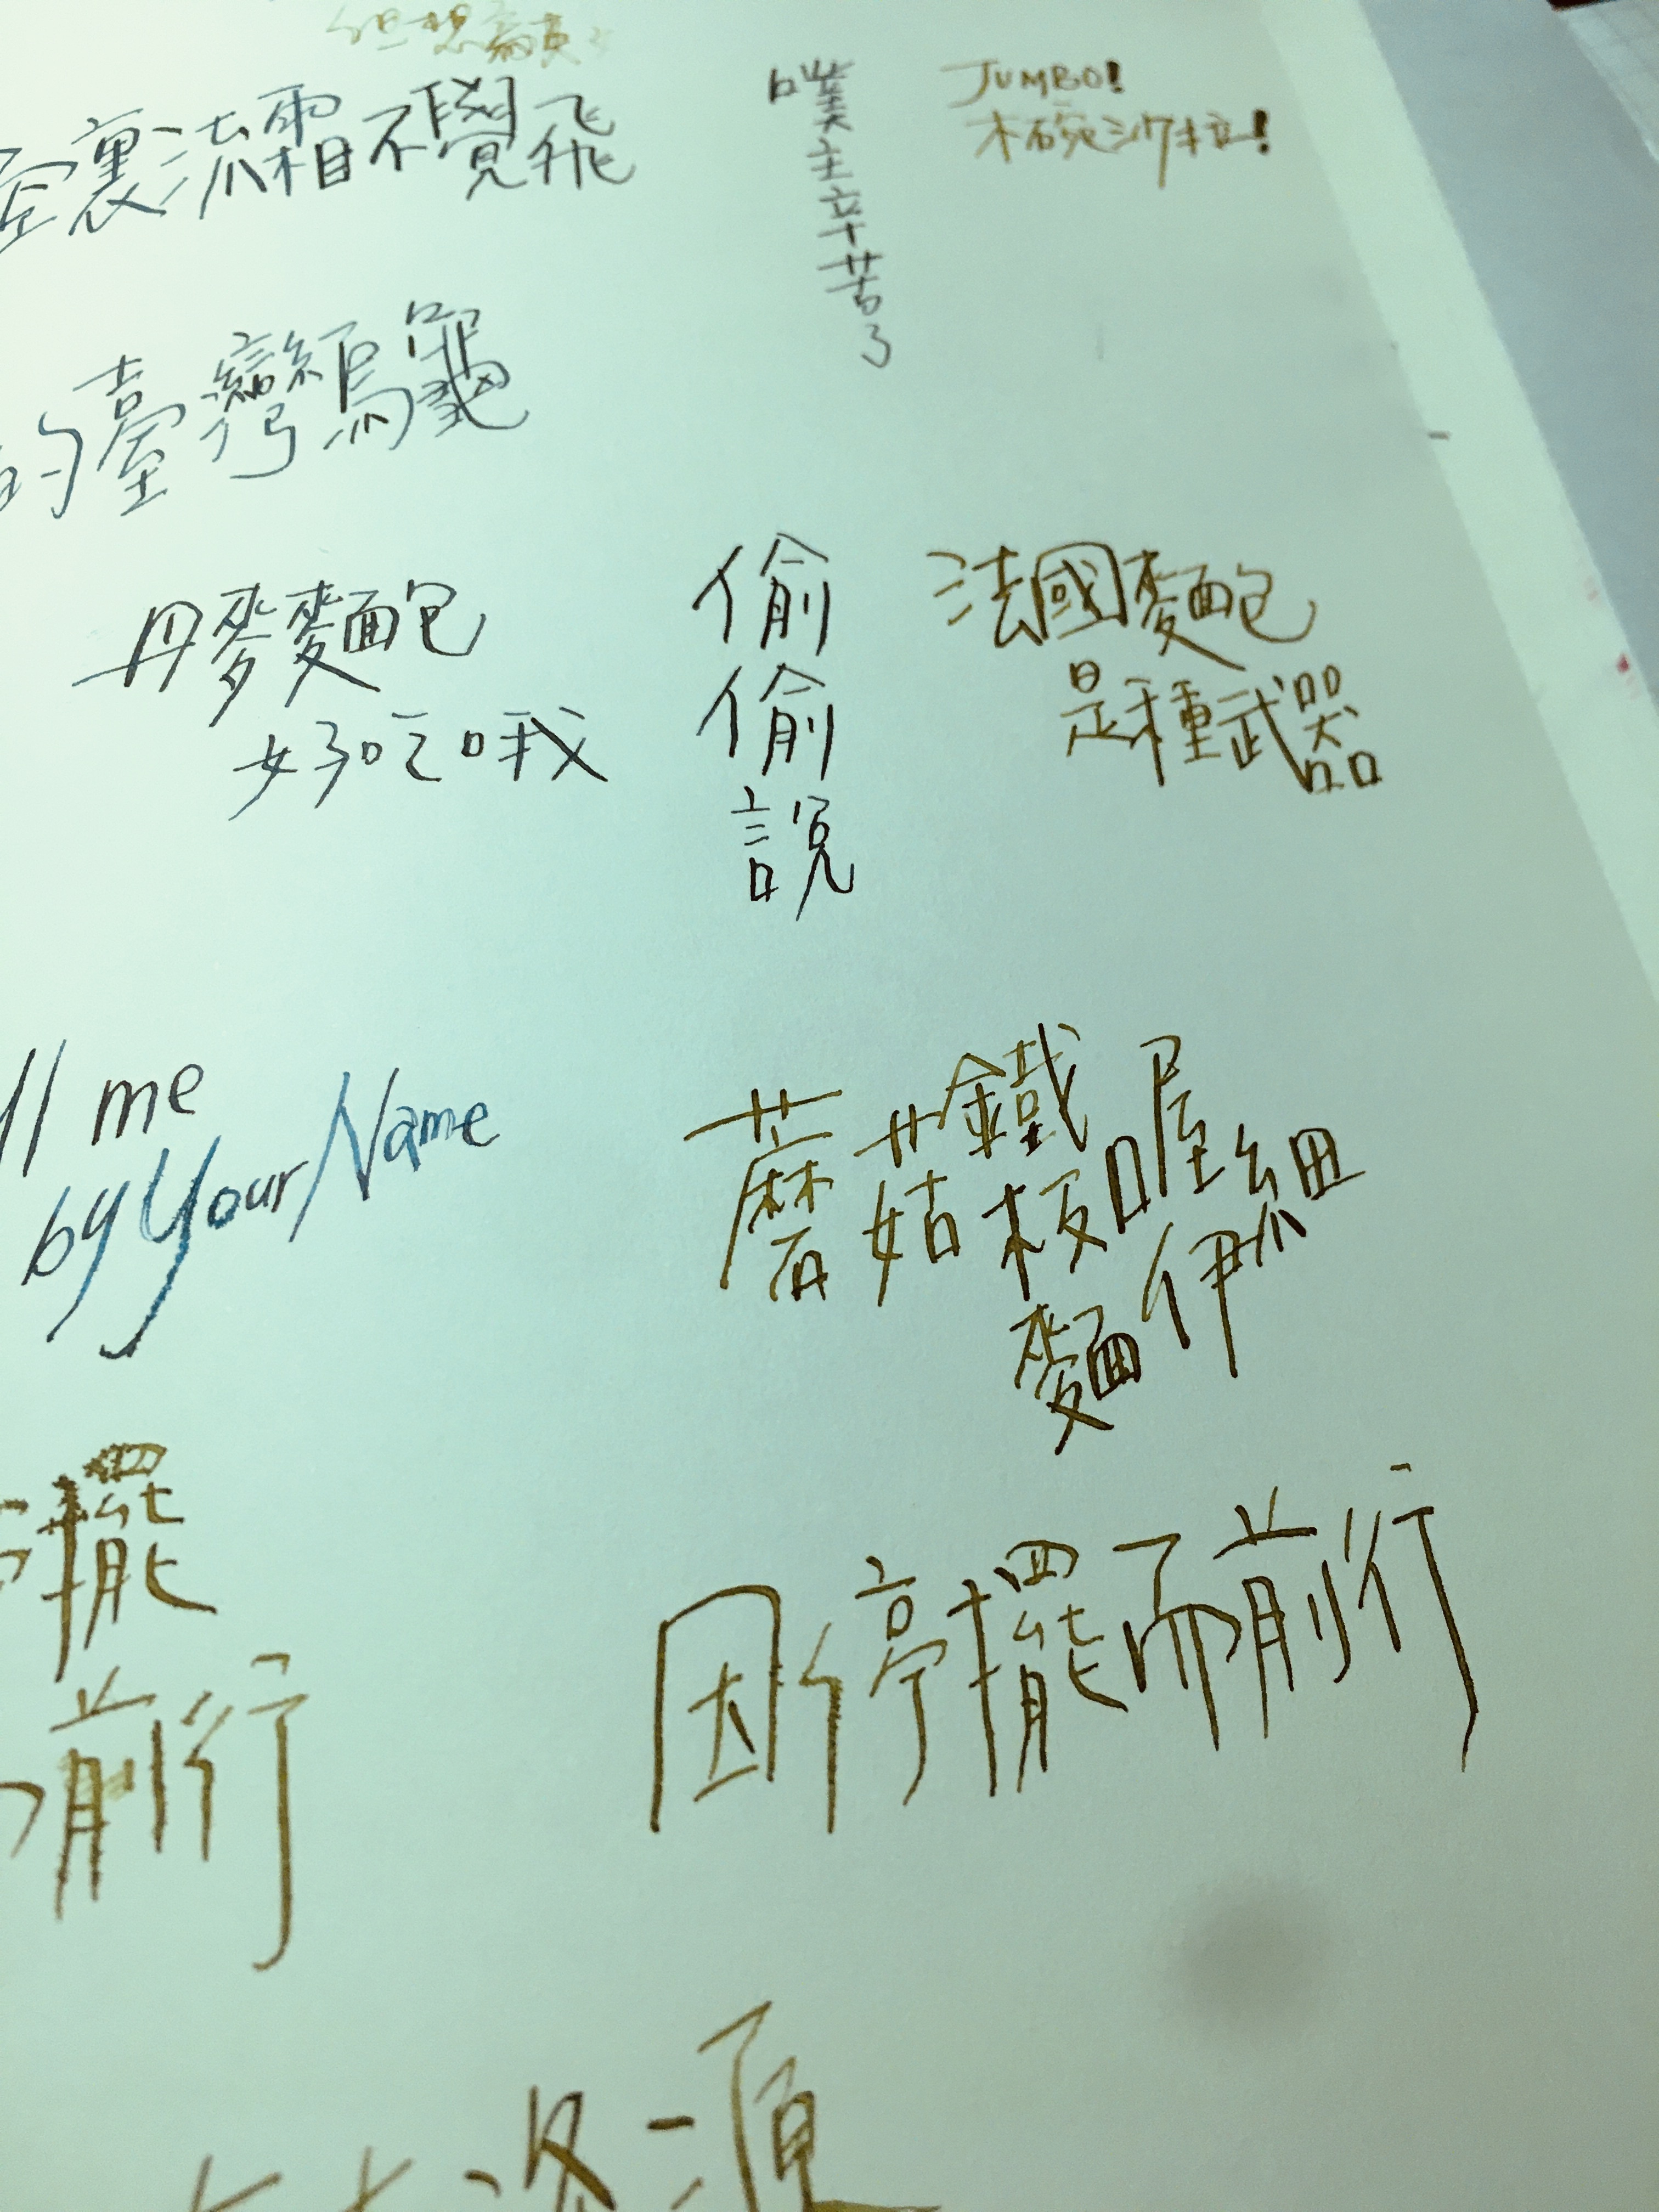 但想
空裏流霜不覺飛
噗主辛苦了
JUMBO!
木碗沙拉!
的臺灣烏龜
丹麥麵包
好吃哦
偷偷說
法國麵包
是種武器
ll me
by Your Name
蘑菇鐵板麵
喔伊細
擺
前行
因停擺而前行
資源